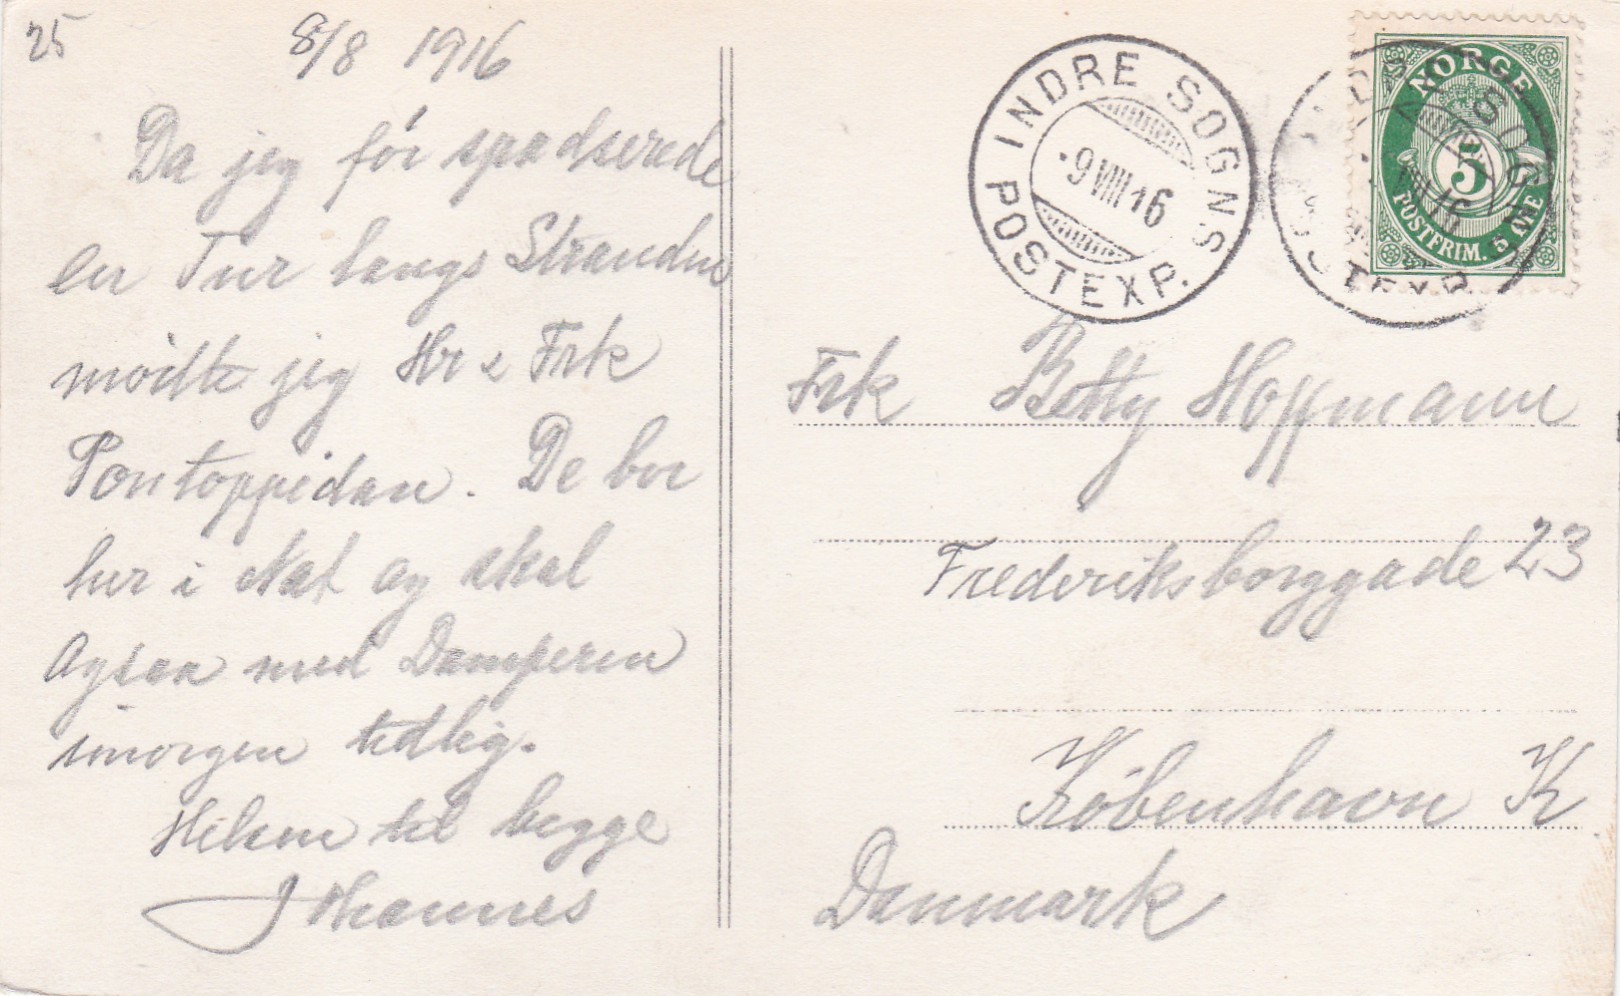 25
8/8 1916
Da jeg før spadserede
en Tur langs Stranden
mødte jeg Hr & Frk
Pontoppidan. De bor
her i Nat og skal
ogsaa med Damperen
imorgen tidlig.
Hilsen til begge
Johannes
INDRE SOGNS
POSTEXP.
9 VIII 16
NORGE
5
POSTFRIM. 5 ØRE
Frk Betty Hoffmann
Frederiksborggade 23
København K
Danmark